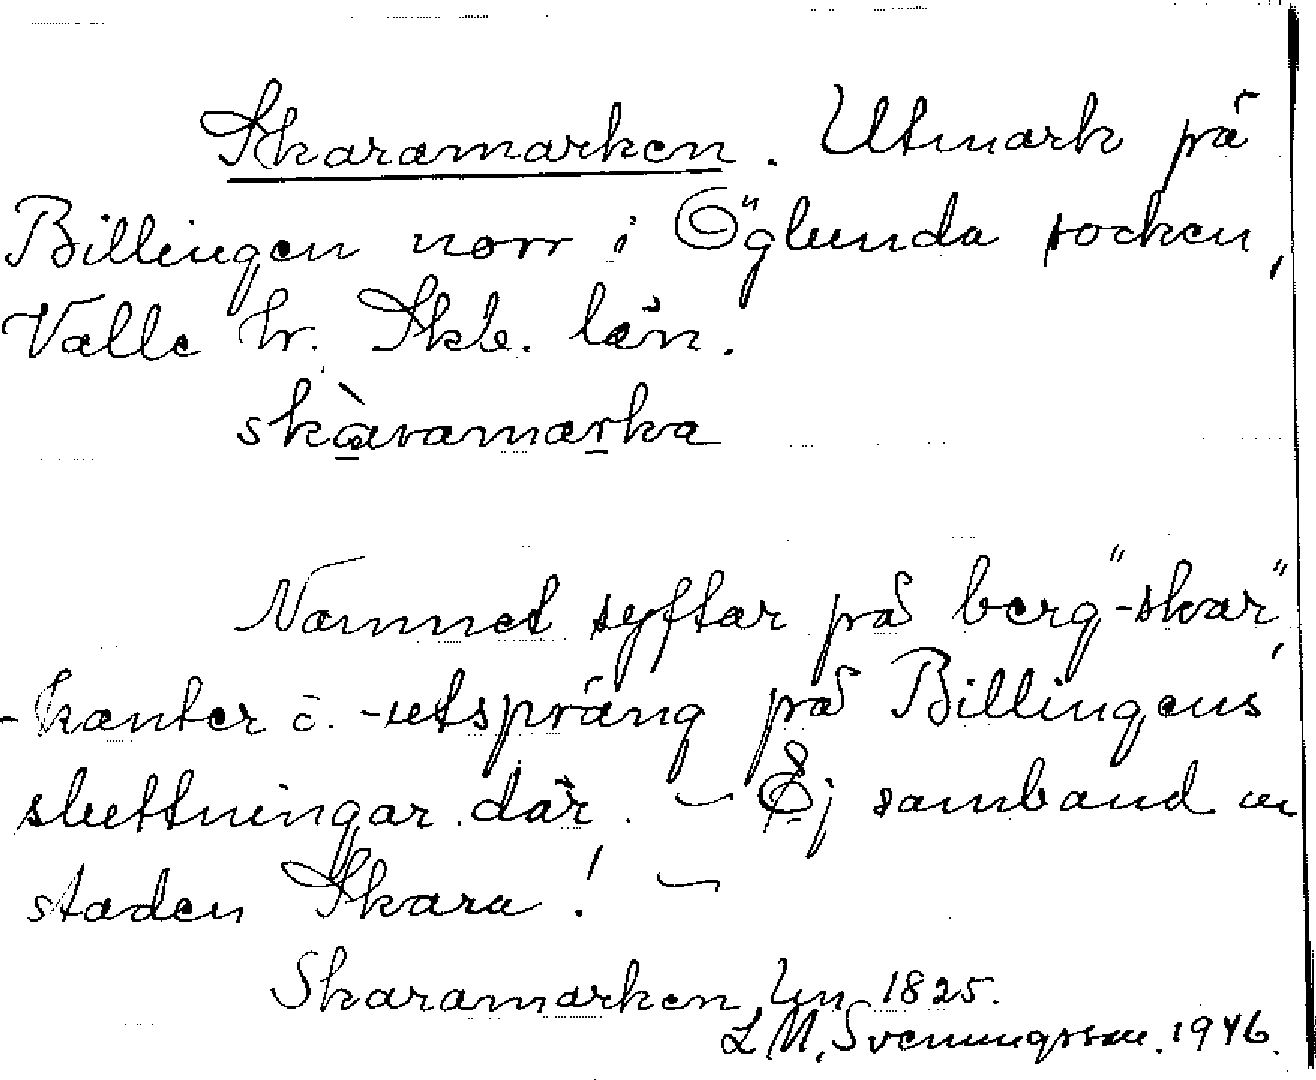 Skaramarken. Utmark på
Billingen norr i Öglunda socken,
Valle hr. Skb. län.
skàramarka
Namnet syftar på berg"-skar",
-kanter o. -utspräng på Billingens
sluttningar där. – Ej samband m
staden Skara! –
Skaramarken Lm 1825.
L M, Svenungsson. 1946.